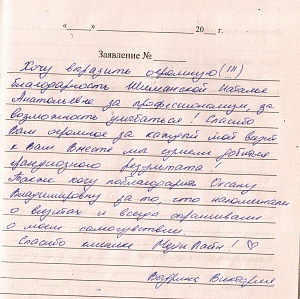 «___» ________ 20___ г.
Заявление № ______
Хочу выразить огромную (!!!)
благодарность Шиманской Наталье
Анатольевне за профессионализм, за
возможность улыбаться! Спасибо
Вам огромное за каждый мой визит
к Вам. Вместе мы сумели добиться
грандиозного результата!
Также хочу поблагодарить Оксану
Владимировну за то, что напоминали
о визитах и всегда спрашивали
о моем самочувствии.
Спасибо клинике Меди Лайн! ♡
Виктория